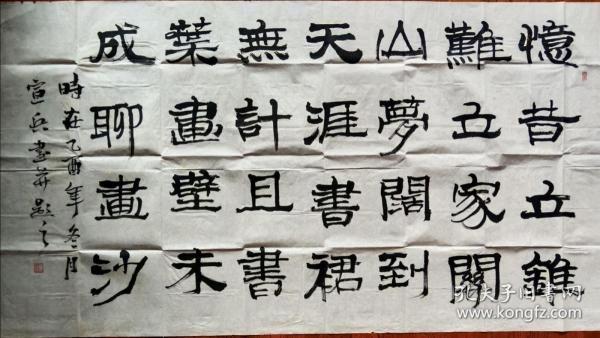 憶昔立錐
難立家關
山夢闊到
天涯書裙
無計且書
葉畫壁未
成聊畫沙
時在乙酉年冬月
宣兵書并題之
孔夫子旧书网
www.kongfz.com